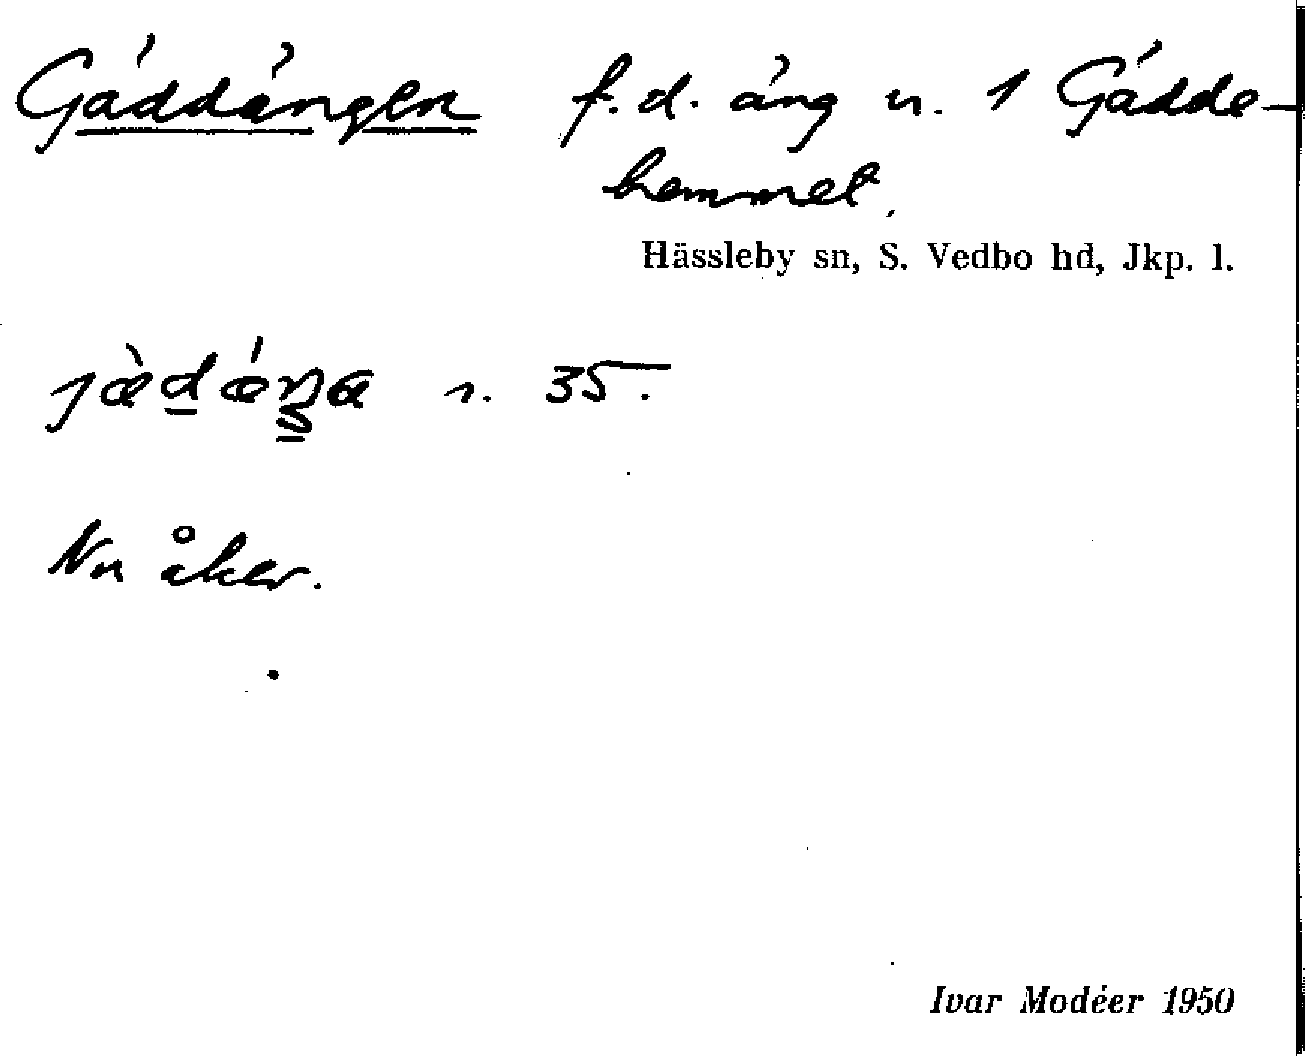 Gäddängen f.d. äng u. 1 Gädde-
hemmet.
Hässleby sn, S. Vedbo hd, Jkp. l.
s. 35.
Nu åker.
Ivar Modéer 1950